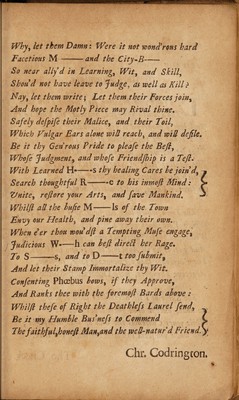 Why, let them Damn: Were it not wond'rous hard
Facetious M—— and the City-B——
So near ally'd in Learning, Wit, and Skill,
Shou'd not have leave to Judge, as well as Kill?
Nay, let them write; Let them their Forces join,
And hope the Motly Piece may Rival thine.
Safely despise their Malice, and their Toil,
Which Vulgar Ears alone will reach, and will defile.
Be it thy Gen'rous Pride to please the Best,
Whose Judgment, and whose Friendship is a Test.
With Learned H——s thy healing Cares be join'd,
Search thoughtful R——e to his inmost Mind:
Unite, restore your Arts, and save Mankind.
Whilst all the busie M——ls of the Town
Envy our Health, and pine away their own.
When e'er thou wou'dst a Tempting Muse engage,
Judicious W——h can best direct her Rage.
To S——s, and to D——t too submit,
And let their Stamp Immortalize thy Wit.
Consenting Phœbus bows, if they Approve,
And Ranks thee with the foremost Bards above:
Whilst these of Right the Deathless Laurel send,
Be it my Humble Bus'ness to Commend
The faithful, honest Man, and the well-natur'd Friend.
Chr. Codrington.